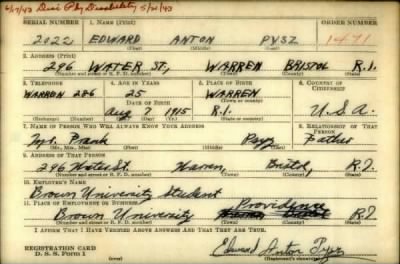 6/7/43 Disc. Phy Disability 5/21/43
SERIAL NUMBER 1. NAME (Print) ORDER NUMBER
2022 EDWARD ANTON PYSZ 1471
(First) (Middle) (Last)
2. ADDRESS (Print)
296 WATER ST, WARREN BRISTOL R.I.
(Number and street or R. F. D. number) (Town) (County) (State)
3. TELEPHONE 4. AGE IN YEARS 5. PLACE OF BIRTH 6. COUNTRY OF CITIZENSHIP
WARREN 286 25 WARREN
DATE OF BIRTH (Town or county)
Aug 7 1915 R.I. U.S.A.
(Mo.) (Day) (Yr.) (State or country)
7. NAME OF PERSON WHO WILL ALWAYS KNOW YOUR ADDRESS 8. RELATIONSHIP OF THAT PERSON
Mr. Frank Pysz Father
(Mr., Mrs., Miss) (First) (Middle) (Last)
9. ADDRESS OF THAT PERSON
296 Water St. Warren, Bristol, R.I.
(Number and street or R. F. D. number) (Town) (County) (State)
10. EMPLOYER'S NAME
Brown University Student
11. PLACE OF EMPLOYMENT OR BUSINESS Providence
Brown University Warren Bristol R.I.
(Number and street or R. F. D. number) (Town) (County) (State)
I AFFIRM THAT I HAVE VERIFIED ABOVE ANSWERS AND THAT THEY ARE TRUE.
REGISTRATION CARD Edward Anton Pysz
D. S. S. Form 1 (Registrant's signature)